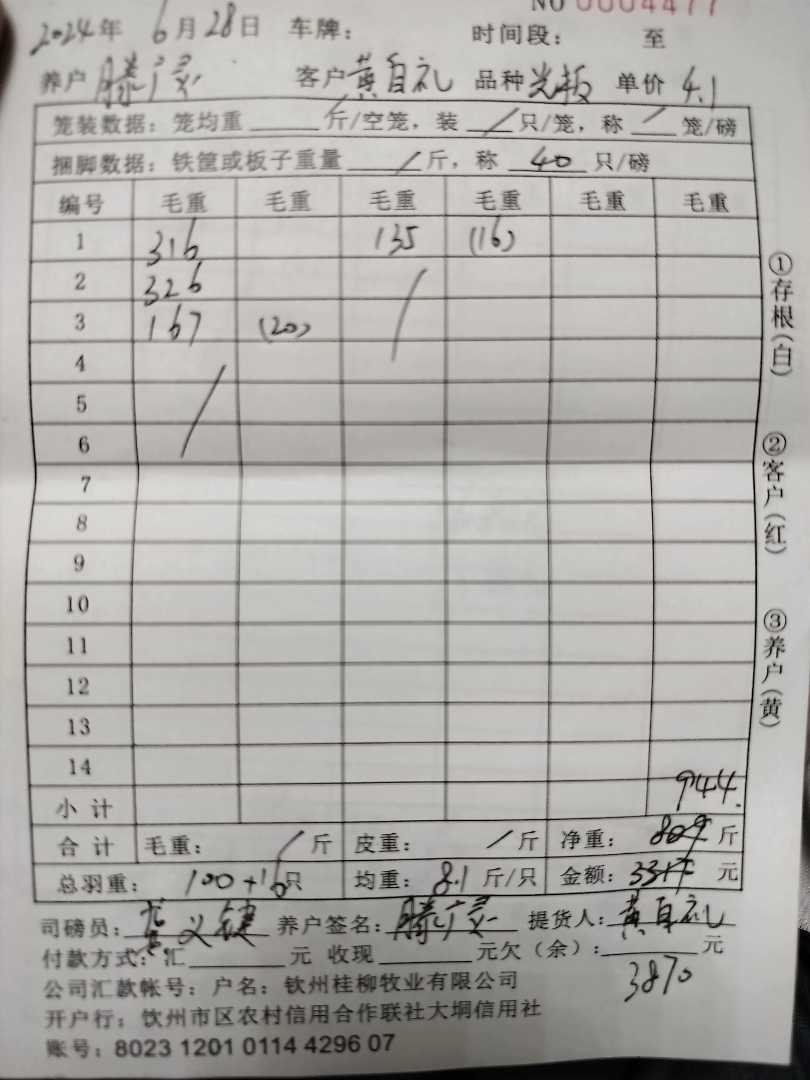 NO 0004477
2024年 6月28日 车牌： 时间段： 至
养户 滕广灵 客户 黄自礼 品种 光板 单价 4.1
笼装数据：笼均重 / 斤/空笼，装 / 只/笼，称 / 笼/磅
捆脚数据：铁筐或板子重量 / 斤，称 40 只/磅
编号 毛重 毛重 毛重 毛重 毛重 毛重
1 316 135 (16)
2 326 /
3 167 (20)
4 /
5
6
7
8
9
10
11
12
13
14
小计 944.
合计 毛重： / 斤 皮重： / 斤 净重： 809 斤
总羽重： 100+16只 均重： 8.1 斤/只 金额： 3317 元
司磅员： 义键 养户签名： 滕广灵 提货人： 黄自礼
付款方式：汇 元 收现 元欠（余）： 元
3870
公司汇款帐号：户名：钦州桂柳牧业有限公司
开户行：钦州市区农村信用合作联社大垌信用社
账号：8023 1201 0114 4296 07
①存根(白)
②客户(红)
③养户(黄)